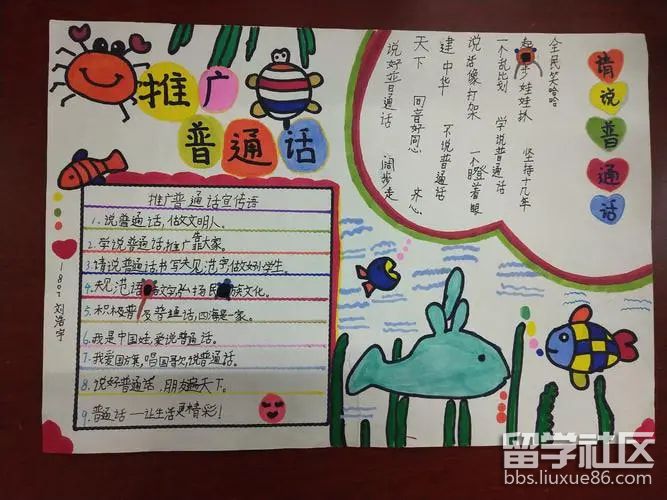 推广
普通话
请说普通话
全民笑哈哈
起步娃娃抓 坚持十几年
一个乱比划 学说普通话
说话像打架 一个瞪着眼
建中华 不说普通话
天下 同音好同心
说好普通话 阔步走
推广普通话宣传语
1.说普通话,做文明人。
2.学说普通话,推广靠大家。
3.请说普通话书写规范字,做好小学生。
4.规范语言文字弘扬民族文化。
5.积极普及普通话,四海是一家。
6.我是中国娃,爱说普通话。
7.我爱国旗,唱国歌,说普通话。
8.说好普通话,朋友遍天下。
9.普通话——让生活更精彩!
1807刘浩宇
留学社区
bbs.liuxue86.com